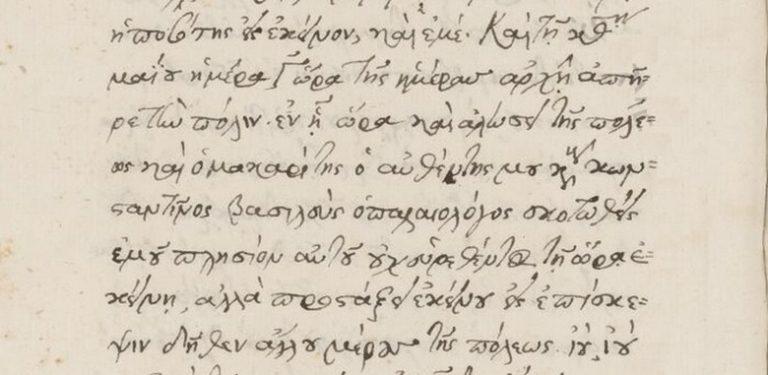 ἡ ποιότης εἰς ἐκεῖνον, καὶ ἐμέ. Καὶ τῇ κθῃ
μαΐου ἡμέρα Γ ὥρα τῆς ἡμέρας ἀρχῇ ἀπῆ-
ρε τὴν πόλιν. ἐν ᾗ ὥρα καὶ ἁλώσει τῆς πόλε=
ως καὶ ὁ μακαρίτης ὁ αὐθέντης μου κὺρ κων=
σταντῖνος βασιλεὺς ὁ παλαιολόγος σκοτωθεὶς
ἐμοῦ πλησίον αὐτοῦ οὐχ εὑρεθέντος τῇ ὥρᾳ ἐ=
κείνῃ, ἀλλὰ προστάξει ἐκείνου εἰς ἐπίσκε=
ψιν δῆθεν ἄλλου μέρους τῆς πόλεως. ἰού, ἰού